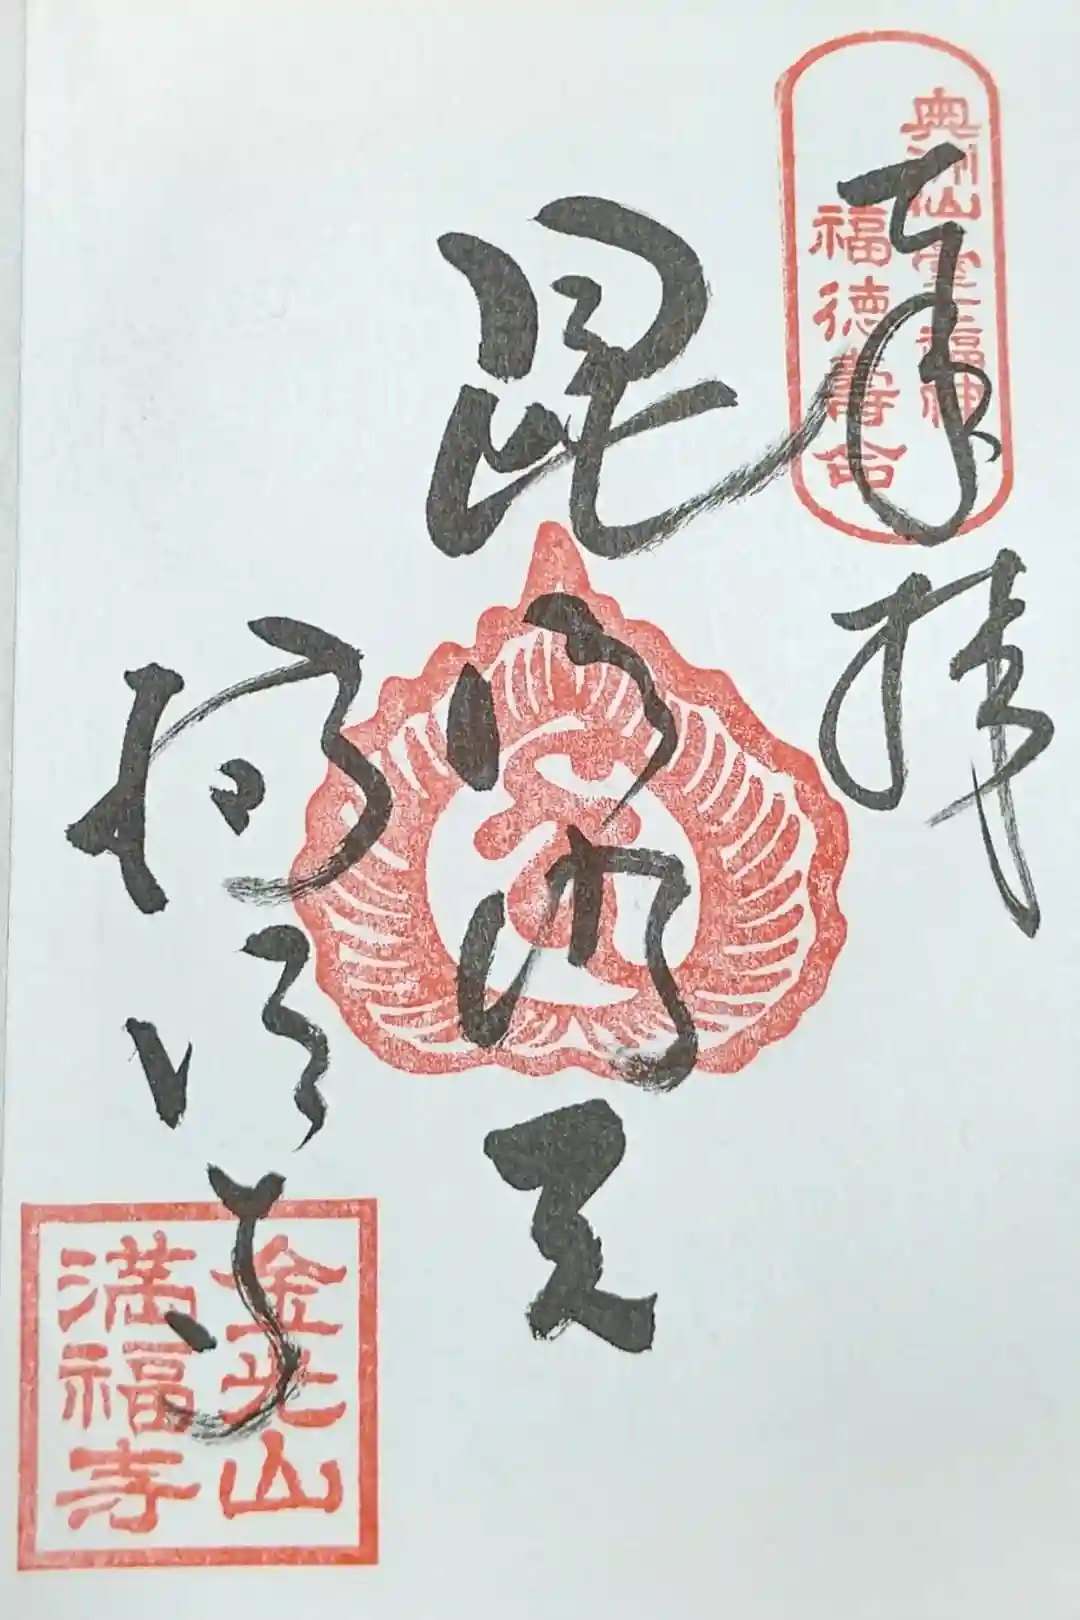 奉拝
奥州仙臺七福神
福徳壽命
毘沙門天
満福寺
金光山
満福寺